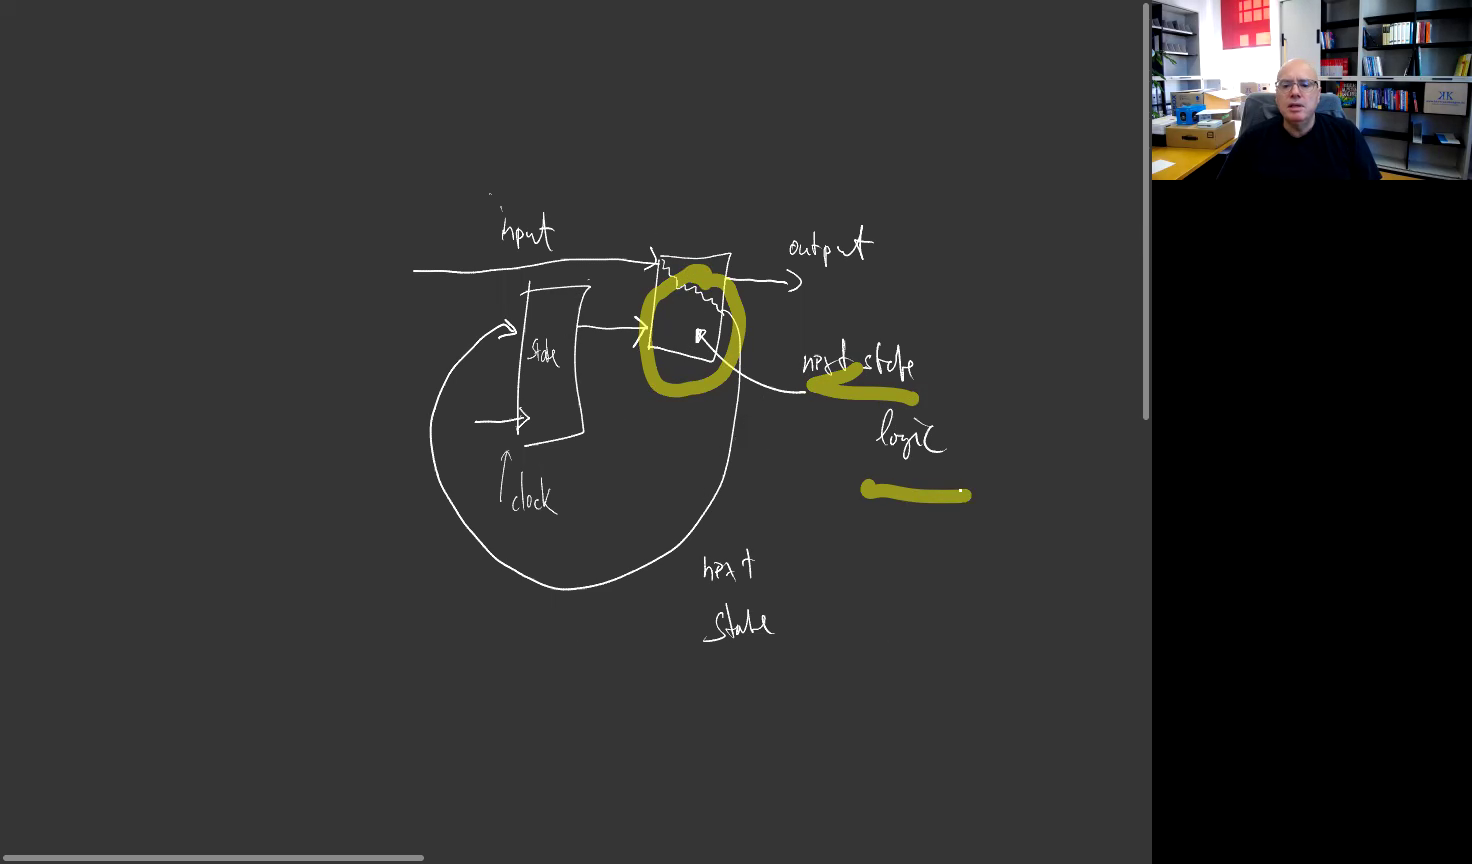 input
output
state
next state
logic
clock
next
state
KK